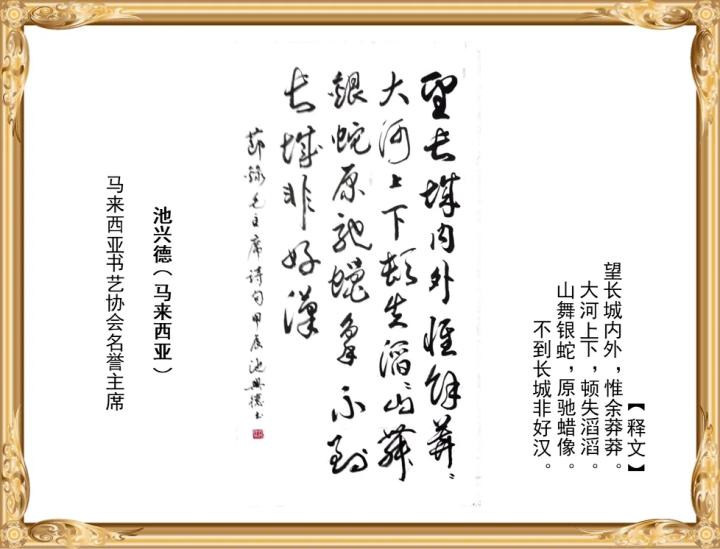 望长城内外，惟余莽莽。
大河上下，顿失滔滔。
山舞银蛇，原驰蜡像。
不到长城非好汉。
【释文】
望长城内外惟馀莽々
大河上下顿失滔々山舞
银蛇原驰蠟象不到
长城非好漢
节録毛主席诗句甲辰池興德书
池兴德（马来西亚）
马来西亚书艺协会名誉主席